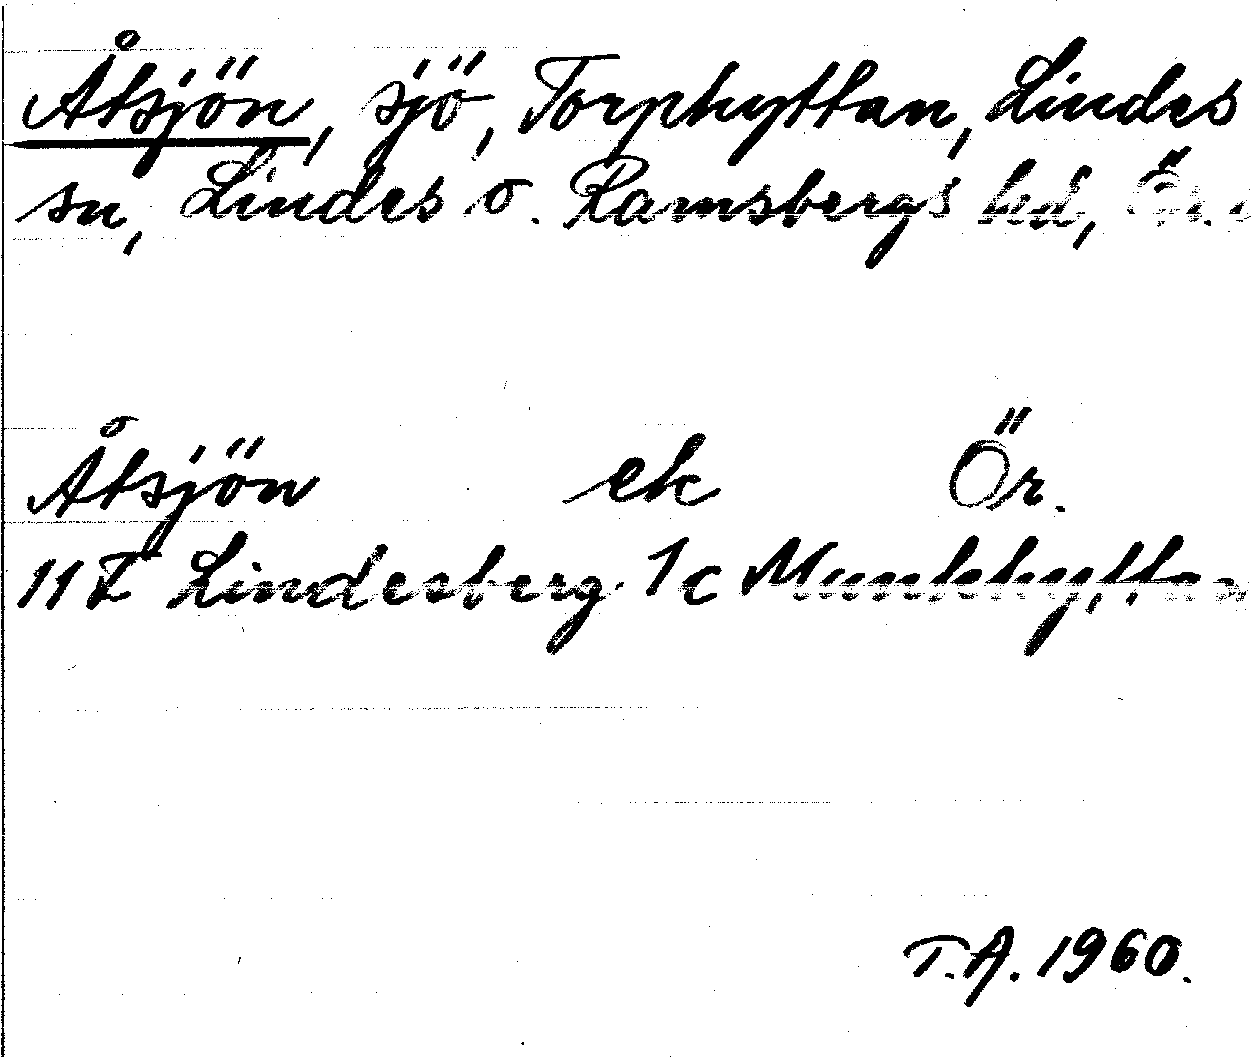 Åtsjön, sjö, Torphyttan, Lindes
sn, Lindes o. Ramsbergs hd, Ör.
Åtsjön ek Ör.
11F Lindesberg 1c Munkhyttan
T.A. 1960.